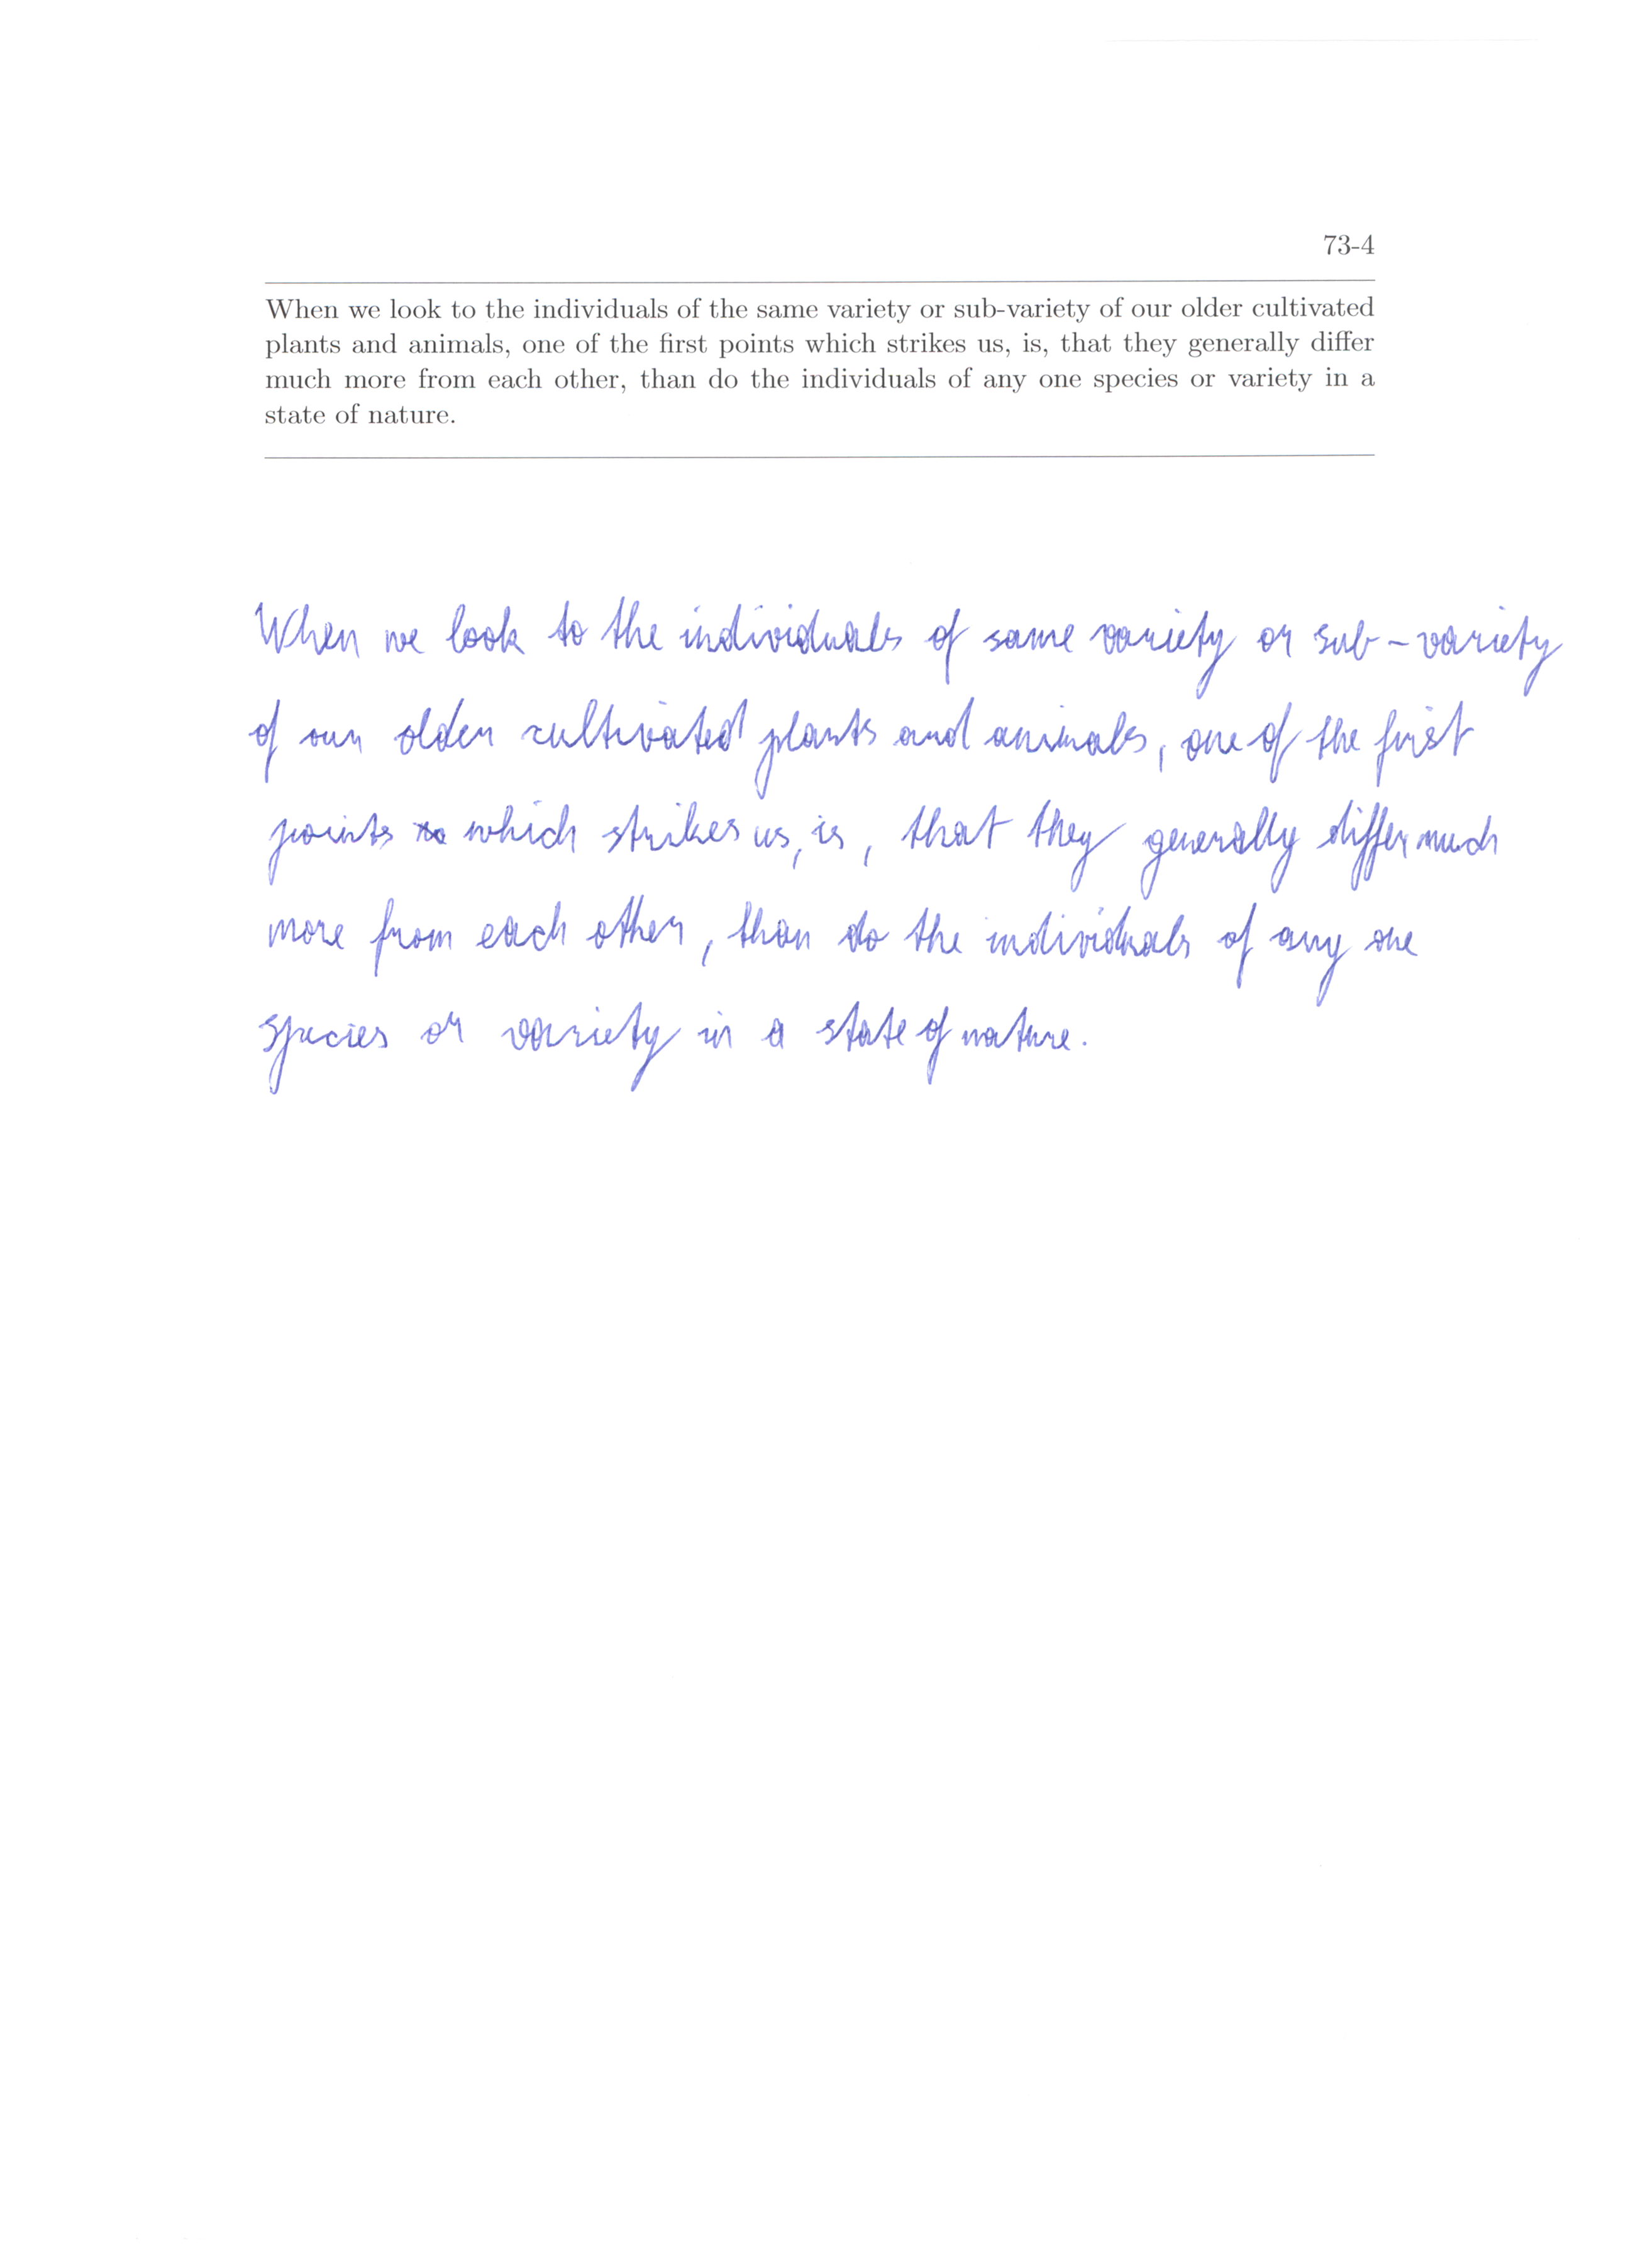 73-4
When we look to the individuals of the same variety or sub-variety of our older cultivated
plants and animals, one of the first points which strikes us, is, that they generally differ
much more from each other, than do the individuals of any one species or variety in a
state of nature.
When we look to the individuals of same variety or sub-variety
of our older cultivated plants and animals, one of the first
points which strikes us, is, that they generally differ much
more from each other, than do the individuals of any one
species or variety in a state of nature.